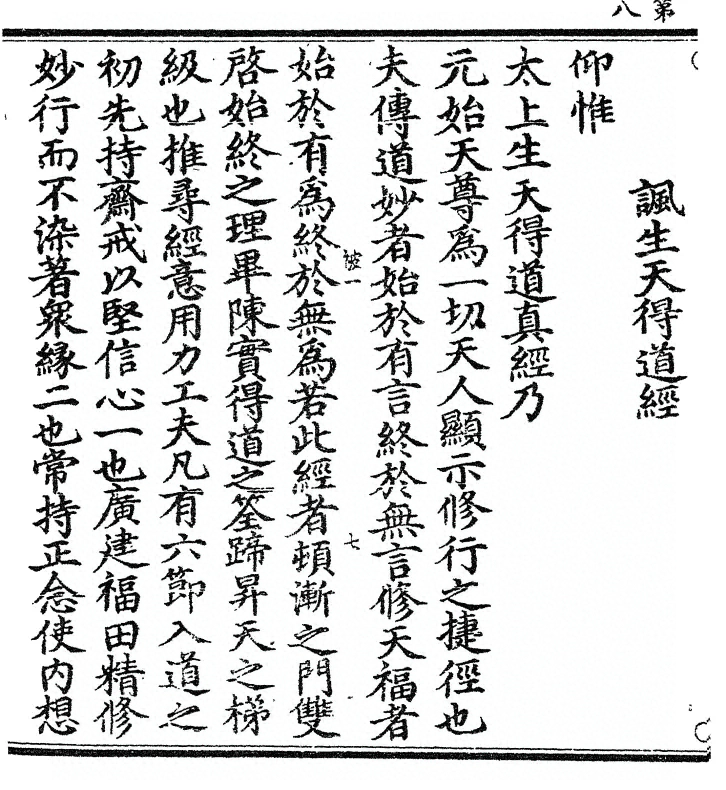 第八
諷生天得道經
仰惟
太上生天得道真經乃
元始天尊爲一切天人顯示修行之捷徑也
夫傳道妙者始於有言終於無言修天福者
被一 七
始於有爲終於無爲若此經者頓漸之門雙
啓始終之理畢陳實得道之筌蹄昇天之梯
級也推尋經意用力工夫凡有六節入道之
初先持齋戒以堅信心一也廣建福田精修
妙行而不染著衆緣二也常持正念使内想